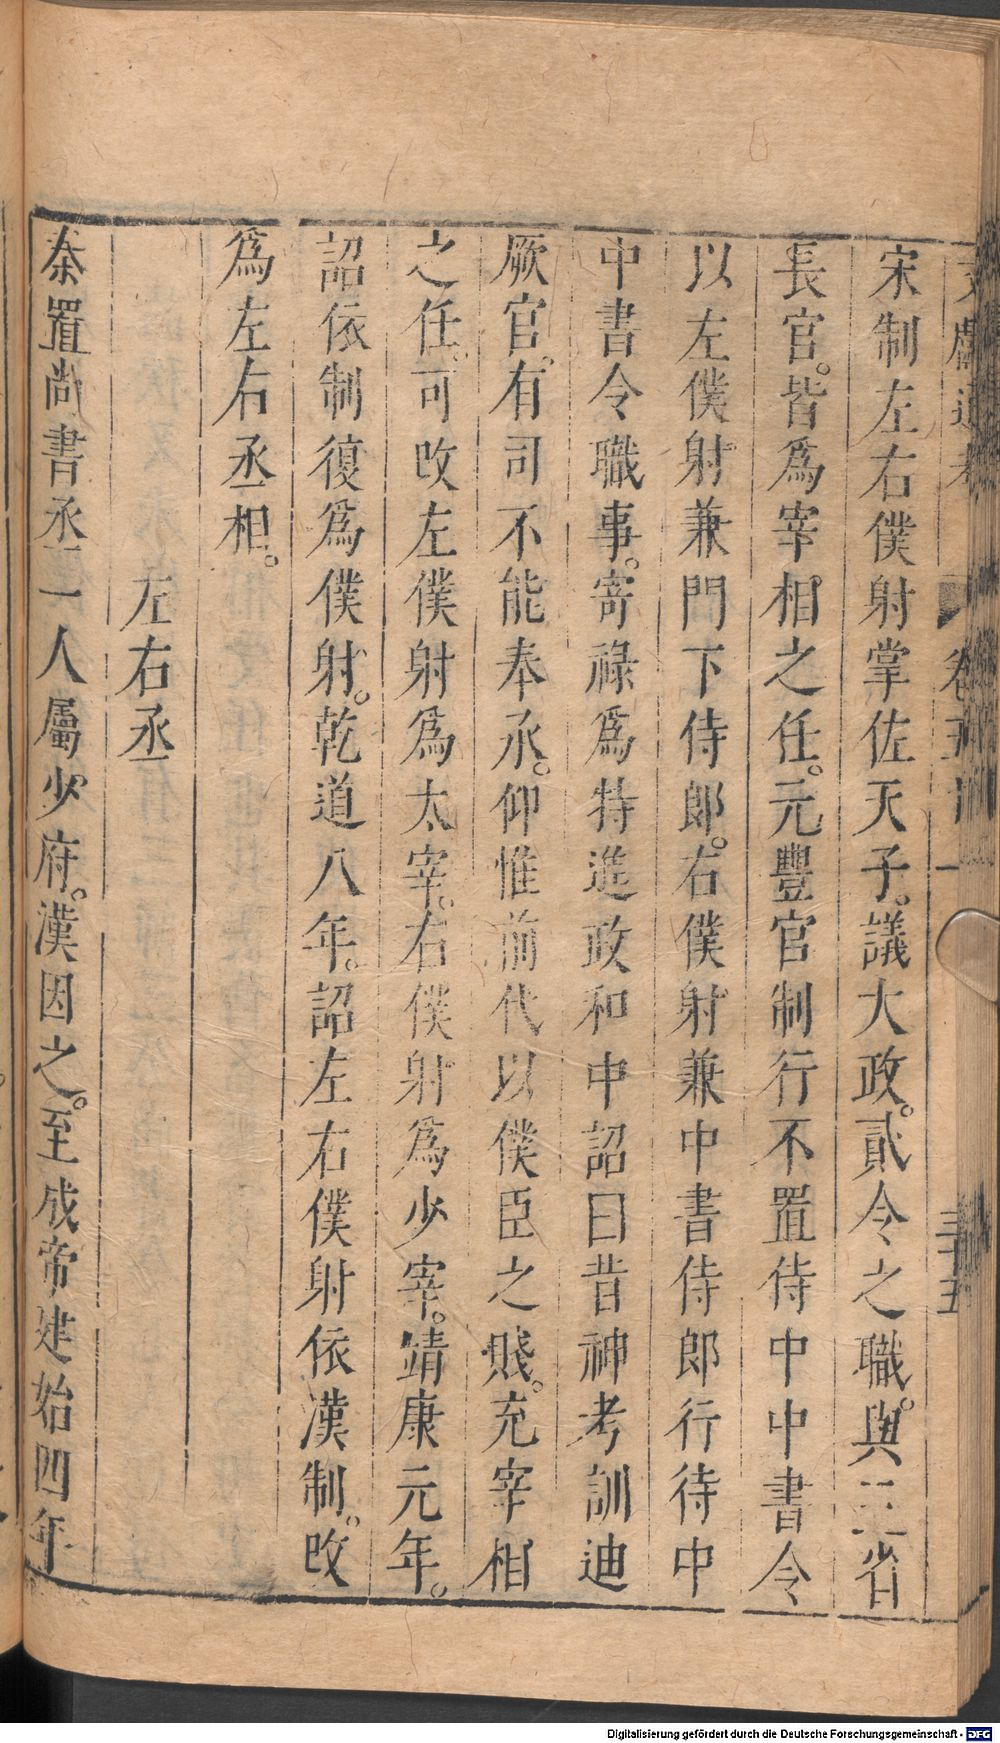 文獻通考 卷五十一 三十五
宋制左右僕射掌佐天子。議大政。貳令之職。與三省
長官。皆爲宰相之任。元豐官制行不置侍中中書令
以左僕射兼門下侍郎。右僕射兼中書侍郎行待中
中書令職事。寄祿爲特進政和中詔曰昔神考訓迪
厥官。有司不能奉承。仰惟前代以僕臣之賤。充宰相
之任。可改左僕射爲太宰。右僕射爲少宰。靖康元年。
詔依制復爲僕射。乾道八年。詔左右僕射依漢制。改
爲左右丞相。
左右丞
秦置尚書丞一人屬少府。漢因之。至成帝建始四年
Digitalisierung gefördert durch die Deutsche Forschungsgemeinschaft - DFG